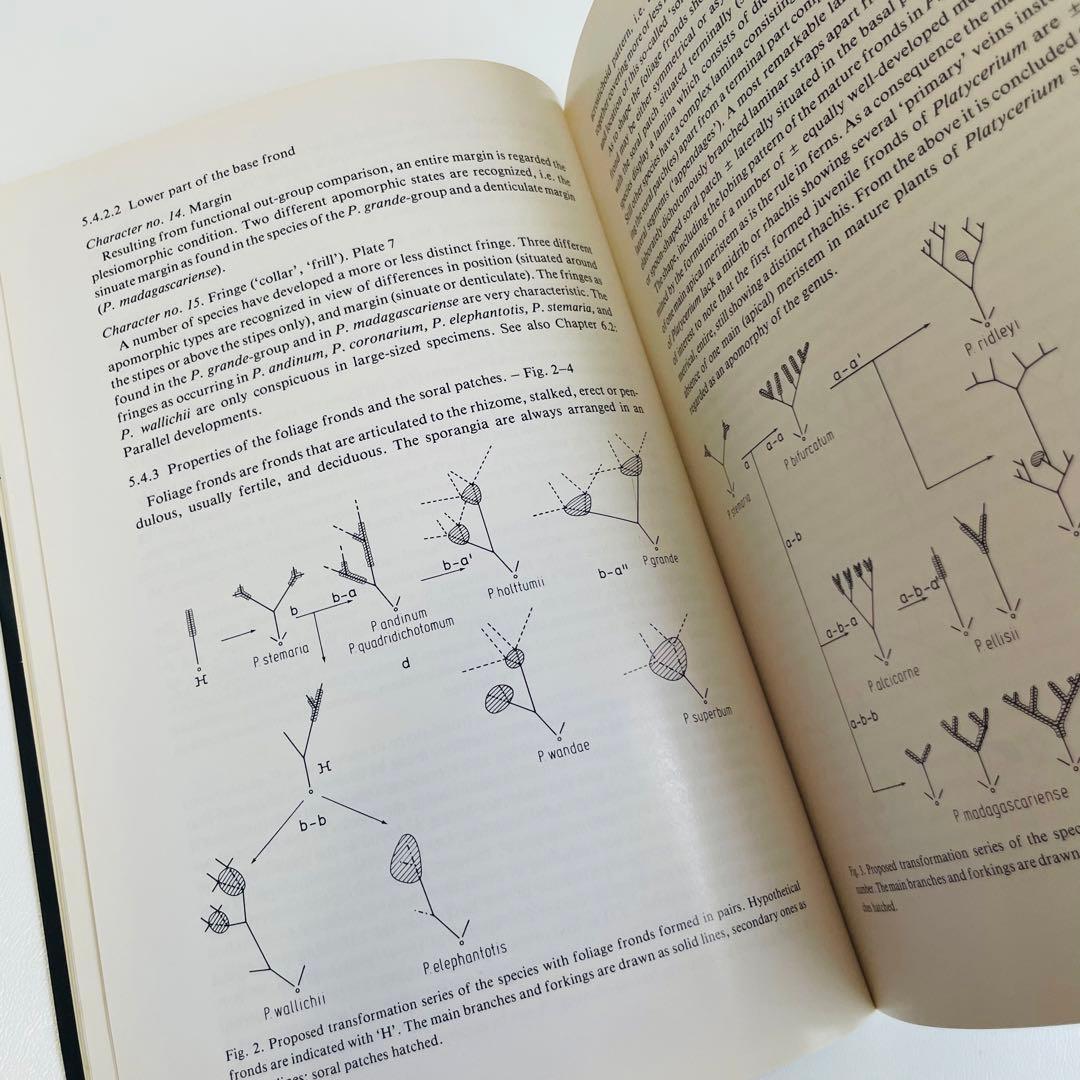 5.4.2.2 Lower part of the base frond
Character no. 14. Margin
Resulting from functional out-group comparison, an entire margin is regarded the
plesiomorphic condition. Two different apomorphic states are recognized, i.e. the
sinuate margin as found in the species of the P. grande-group and a denticulate margin
(P. madagascariense).
Character no. 15. Fringe (‘collar’, ‘frill’). Plate 7
A number of species have developed a more or less distinct fringe. Three different
apomorphic types are recognized in view of differences in position (situated around
the stipes or above the stipes only), and margin (sinuate or denticulate). The fringes as
found in the P. grande-group and in P. madagascariense are very characteristic. The
fringes as occurring in P. andinum, P. coronarium, P. elephantotis, P. stemaria, and
P. wallichii are only conspicuous in large-sized specimens. See also Chapter 6.2:
Parallel developments.
5.4.3 Properties of the foliage fronds and the soral patches. – Fig. 2–4
Foliage fronds are fronds that are articulated to the rhizome, stalked, erect or pen-
dulous, usually fertile, and deciduous. The sporangia are always arranged in an
H
P. stemaria
b
b-a
P. andinum
P. quadridichotomum
d
b-a'
P. holttumii
b-a"
P. grande
P. wandae
P. superbum
H
b-b
P. wallichii
P. elephantotis
Fig. 2. Proposed transformation series of the species with foliage fronds formed in pairs. Hypothetical
fronds are indicated with ‘H’. The main branches and forkings are drawn as solid lines, secondary ones as
lines; soral patches hatched.
pattern, i.e.
more or less
of this so-called
to shape the foliage fronds
may be either symmetrical or
the soral patch situated terminally
display a lamina which consists of
species have a complex lamina consisting
soral patch(es) apart from a terminal part
segments (‘appendages’). A most remarkable
dichotomously branched laminar straps apart
spoon-shaped soral patch ± laterally situated in the basal
shape, including the lobing pattern of the mature fronds in
by the formation of a number of ± equally well-developed
of one main apical meristem as is the rule in ferns. As a consequence the
of Platycerium lack a midrib or rhachis showing several ‘primary’ veins
of interest to note that the first formed juvenile fronds of Platycerium are ±
metrical, entire, still showing a distinct rhachis. From the above it is concluded
absence of one main (apical) meristem in mature plants of Platycerium
regarded as an apomorphy of the genus.
P. stemaria
a
a-a
P. bifurcatum
a-a'
P. ridleyi
a-b
a-b-a
P. alcicorne
a-b-a'
P. ellisii
a-b-b
P. madagascariense
Fig. 3. Proposed transformation series of the
number. The main branches and forkings are drawn
hatched.